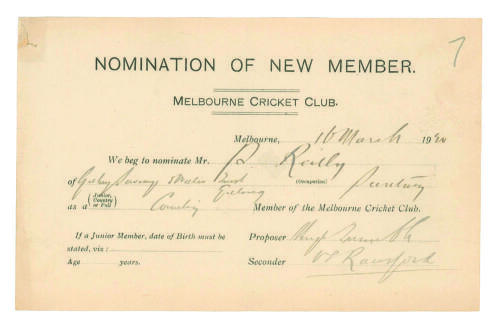 7
NOMINATION OF NEW MEMBER.
MELBOURNE CRICKET CLUB.
Melbourne, 16 March 1920
We beg to nominate Mr. Reilly
of East (Occupation)
Geelong
as a (Junior, Country or Full) Country Member of the Melbourne Cricket Club.
If a Junior Member, date of Birth must be Proposer Hugh
stated, viz:
Age years. Seconder Ransford